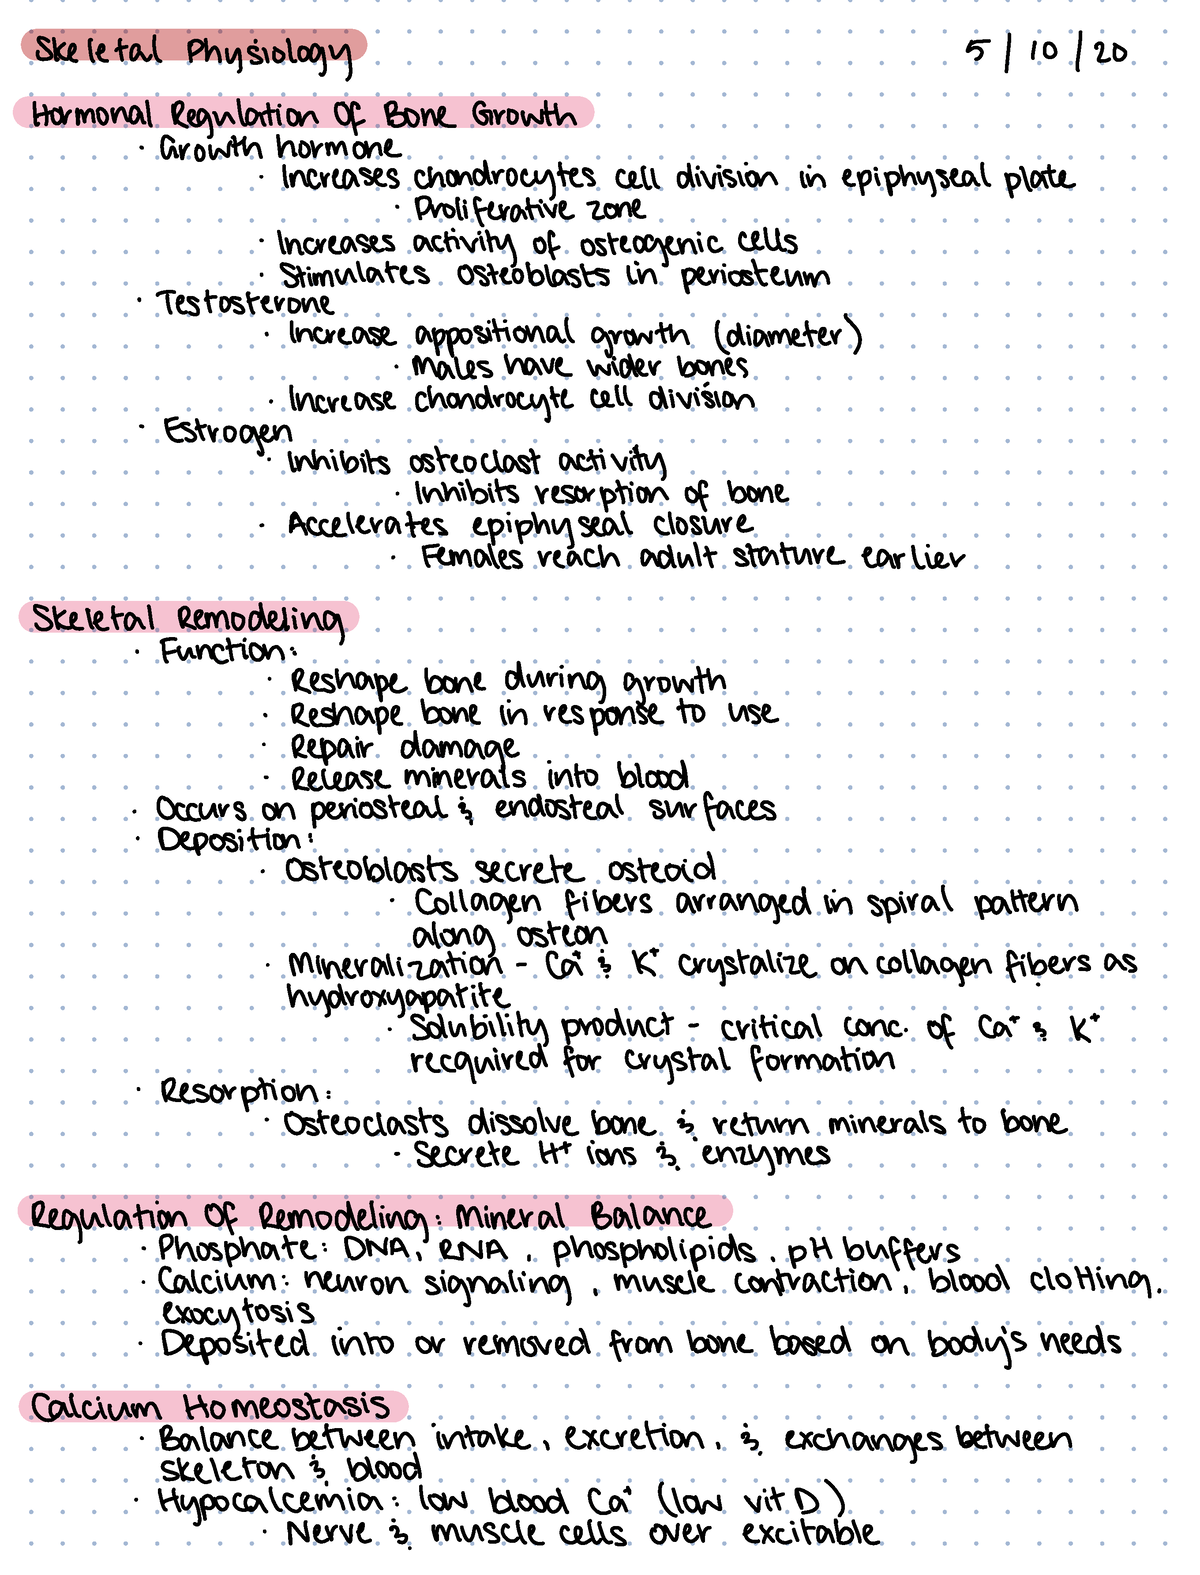 Skeletal Physiology 5/10/20
Hormonal Regulation Of Bone Growth
· Growth hormone
· Increases chondrocytes cell division in epiphyseal plate
· Proliferative zone
· Increases activity of osteogenic cells
· Stimulates osteoblasts in periosteum
· Testosterone
· Increase appositional growth (diameter)
· Males have wider bones
· Increase chondrocyte cell division
· Estrogen
· Inhibits osteoclast activity
· Inhibits resorption of bone
· Accelerates epiphyseal closure
· Females reach adult stature earlier
Skeletal Remodeling
· Function:
· Reshape bone during growth
· Reshape bone in response to use
· Repair damage
· Release minerals into blood
· Occurs on periosteal & endosteal surfaces
· Deposition:
· Osteoblasts secrete osteoid
· Collagen fibers arranged in spiral pattern
along osteon
· Mineralization - Ca⁺ & K⁺ crystalize on collagen fibers as
hydroxyapatite
· Solubility product - critical conc. of Ca⁺ & K⁺
recquired for crystal formation
· Resorption:
· Osteoclasts dissolve bone & return minerals to bone
· Secrete H⁺ ions & enzymes
Regulation Of Remodeling: Mineral Balance
· Phosphate: DNA, RNA, phospholipids, pH buffers
· Calcium: neuron signaling, muscle contraction, blood clotting,
exocytosis
· Deposited into or removed from bone based on body's needs
Calcium Homeostasis
· Balance between intake, excretion, & exchanges between
skeleton & blood
· Hypocalcemia: low blood Ca⁺ (low vit D)
· Nerve & muscle cells over excitable